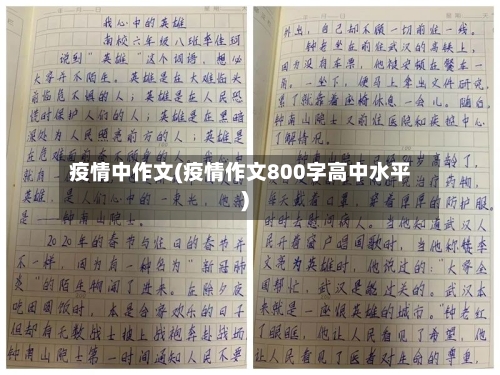 我心中的英雄
南校六年级八班李佳珂
说到“英雄”这个词语，想必
大家并不陌生。英雄是在大难临头
前临危不惧的人；英雄是在人民恐
慌时保护人们的人；英雄是在黑暗
深处为人民照亮前方的人；英雄是
是——钟南山院士。
2020年的春节与往日的春节并
不一样，因为有一种名为“新冠肺
炎”的陌生物闯了进来。在除夕夜
吃团圆饭时，本是合家欢乐的日子
但却有无数战士披上战袍奔赴战场
钟南山院士第一时间通知人民不要
外出，自己却不顾一切前往一线。
钟老坐在前往武汉的高铁上，
因为没有车票，他被安顿在餐车一
角。一坐下，便马上拿出文件研究，
累了就靠着座椅休息一会儿。随后，
钟南山院士又前往医院和疾控中心
了解情况。
疫情中作文(疫情作文800字高中水平
)
时时去慰问病人。当他知道武汉人
民开着窗户唱国歌时，当他称赞李
文亮为英雄时，他说过的：“大家全
国帮忙，武汉是能过关的。武汉本
来就是一座很英雄的城市。”钟老红
了眼眶，他让人民看见了希望，他
让人民看见了医者对生命的尊重，